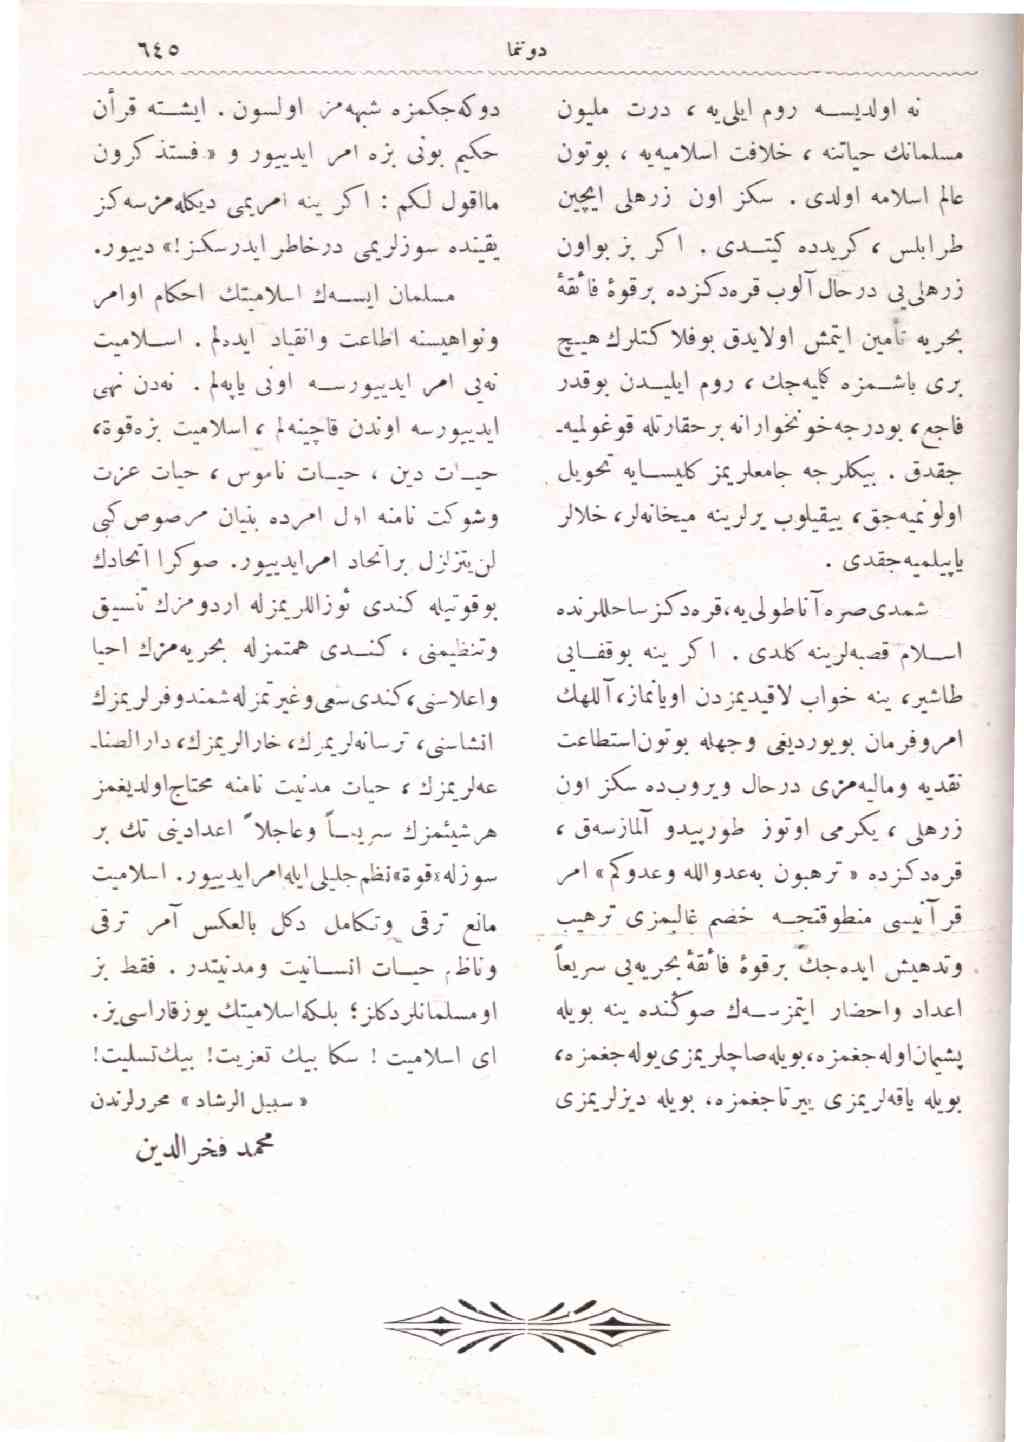 دوتما
٦٤٥
نه اولدیسه روم ایلی‌یه ، درت ملیون
مسلمانك حیاتنه ، خلافت اسلامیه‌یه ، بوتون
عالم اسلامه اولدی . سكز اون زرهلی ایچین
طرابلس ، كریدده كیتدی . اكر بز بواون
زرهلی‌یی درحال آلوب قره‌دكزده برقوۀ فائقۀ
بحریه تأمین ایتمش اولایدق بوفلاكتلرك هیچ
بری باشمزه كلیه‌جك ، روم ایلیدن بوقدر
فاجع ، بودرجه خونخوارانه برحقارتله قوغولمیه‌ـ
جقدق . بیكلرجه جامعلریمز كلیسایه تحویل
اولونمیه‌جق ، ییقیلوب یرلرینه میخانه‌لر ، خلالر
یاپیلمیه‌جقدی .
شمدی صره آناطولی‌یه ، قره‌دكز ساحللرنده
اسلام قصبه‌لرینه كلدی . اكر ینه بوقفایی
طاشیر ، ینه خواب لاقیدیمزدن اویانماز ، آللهك
امروفرمان بویوردیغی وجهله بوتون استطاعت
نقدیه ومالیه‌مزی درحال ویروب‌ده سكز اون
زرهلی ، یكرمی اوتوز طورپیدو آلمازسه‌ق ،
قره‌دكزده « ترهبون به‌عدوالله وعدوكم » امر
قرآنیسی منطوقنجه خصم غالبمزی ترهیب
وتدهیش ایده‌جك برقوۀ فائقۀ بحریه‌یی سریعاً
اعداد واحضار ایتمزسه‌ك صوكنده ینه بویله
پشیمان اوله‌جغمزه ، بویله صاچلریمزی یوله‌جغمزه ،
بویله یاقه‌لریمزی ییرتاجغمزه ، بویله دیزلریمزی
دوكه‌جكمزه شبهه‌مز اولسون . ایشته قرأن
حكیم بونی بزه امر ایدییور و « فستذكرون
مااقول لكم : اكر ینه امریمی دیكله‌مزسه‌كز
یقینده سوزلریمی درخاطر ایدرسكز !» دییور.
مسلمان ایسه‌ك اسلامیتك احكام اوامر
ونواهیسنه اطاعت وانقیاد ایده‌لم . اسلامیت
نه‌یی امر ایدییورسه اونی یاپه‌لم . نه‌دن نهی
ایدییورسه اوندن قاچینه‌لم ، اسلامیت بزه قوة ،
حیات دین ، حیات ناموس ، حیات عزت
وشوكت نامنه اول امرده بنیان مرصوص كبی
لن یتزلزل براتحاد امرایدییور. صوكرا اتحادك
بوقوتیله كندی ئوزاللریمزله اردومزك تنسیق
وتنظیمنی ، كندی همتمزله بحریه‌مزك احیا
واعلاسنی ، كندی سعی وغیرتمزله شمندوفرلریمزك
انشاسنی ، ترسانه‌لریمزك ، خارالریمزك ، دارالصناـ
عه‌لریمزك ، حیات مدنیت نامنه محتاج اولدیغمز
هرشیئمزك سریعاً وعاجلاً اعدادینی تك بر
سوزله «قوة» نظم جلیلی ایله امرایدییور. اسلامیت
مانع ترقی وتكامل دكل بالعكس آمر ترقی
وناظم حیات انسانیت ومدنیتدر . فقط بز
اومسلمانلردكلز ؛ بلكه اسلامیتك یوزقاراسی‌یز.
ای اسلامیت ! سكا بیك تعزیت ! بیك تسلیت !
« سبیل الرشاد » محررلرندن
محمد فخرالدین